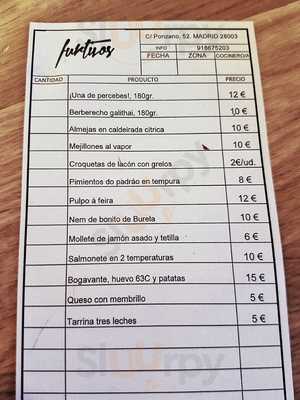 furtivos
C/ Ponzano, 52. MADRID 28003
INFO 918675203
FECHA ZONA COCINERO/A
CANTIDAD PRODUCTO PRECIO
¡Una de percebes!, 180gr. 12 €
Berberecho galithai, 180gr. 10 €
Almejas en caldeirada cítrica 10 €
Mejillones al vapor 10 €
Croquetas de lacón con grelos 2€/ud.
Pimientos do padrão en tempura 8 €
Pulpo á feira 12 €
Nem de bonito de Burela 10 €
Mollete de jamón asado y tetilla 6 €
Salmonete en 2 temperaturas 10 €
Bogavante, huevo 63C y patatas 15 €
Queso con membrillo 5 €
Tarrina tres leches 5 €
sluurrpy